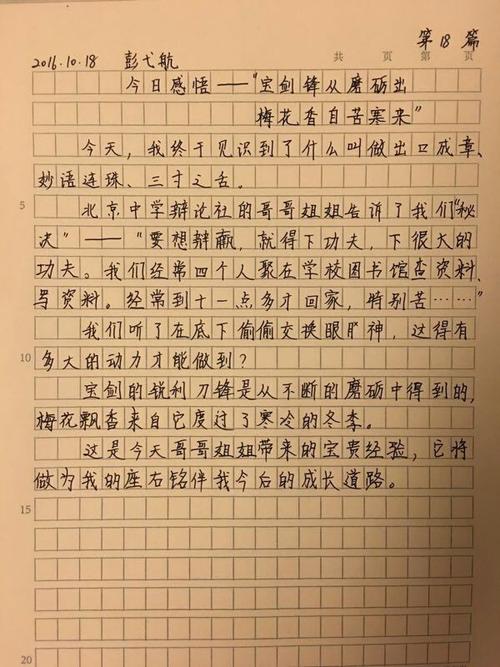 第 18 篇
2016.10.18 彭弋航 共 页 第 页
今日感悟——“宝剑锋从磨砺出
梅花香自苦寒来”
今天，我终于见识到了什么叫做出口成章、
妙语连珠、三寸之舌。
5 北京中学辩论社的哥哥姐姐告诉了我们“秘
决”——“要想辩赢，就得下功夫，下很大的
功夫。我们经常四个人聚在学校图书馆查资料、
写资料。经常到十一点多才回家，特别苦……”
我们听了在底下偷偷交换眼神，这得有
10 多大的动力才能做到？
宝剑的锐利刀锋是从不断的磨砺中得到的，
梅花飘香来自它度过了寒冷的冬季。
这是今天哥哥姐姐带来的宝贵经验，它将
做为我的座右铭伴我今后的成长道路。
15
20